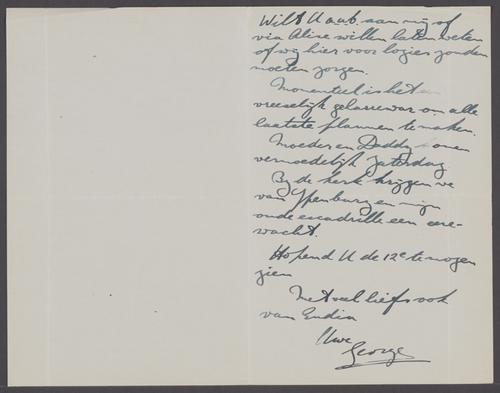 Wilt U a.u.b. aan mij of
via Alise willen laten weten
of wij hier voor logies zouden
moeten zorgen.
Momenteel is het een
vreeselijk geharrewar om alle
laatste plannen te maken.
Moeder en Daddy komen
vermoedelijk Zaterdag.
Bij de kerk krijgen we
van Ypenburg en mijn
oude escadrille een eere-
wacht.
Hopend U de 12e te mogen
zien
Met veel liefs ook
van
Uwe
George